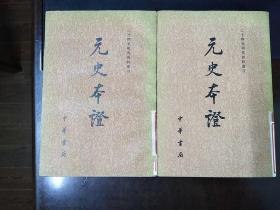 二十四史研究資料叢刊
元史本證
中華書局
二十四史研究資料叢刊
元史本證
中華書局